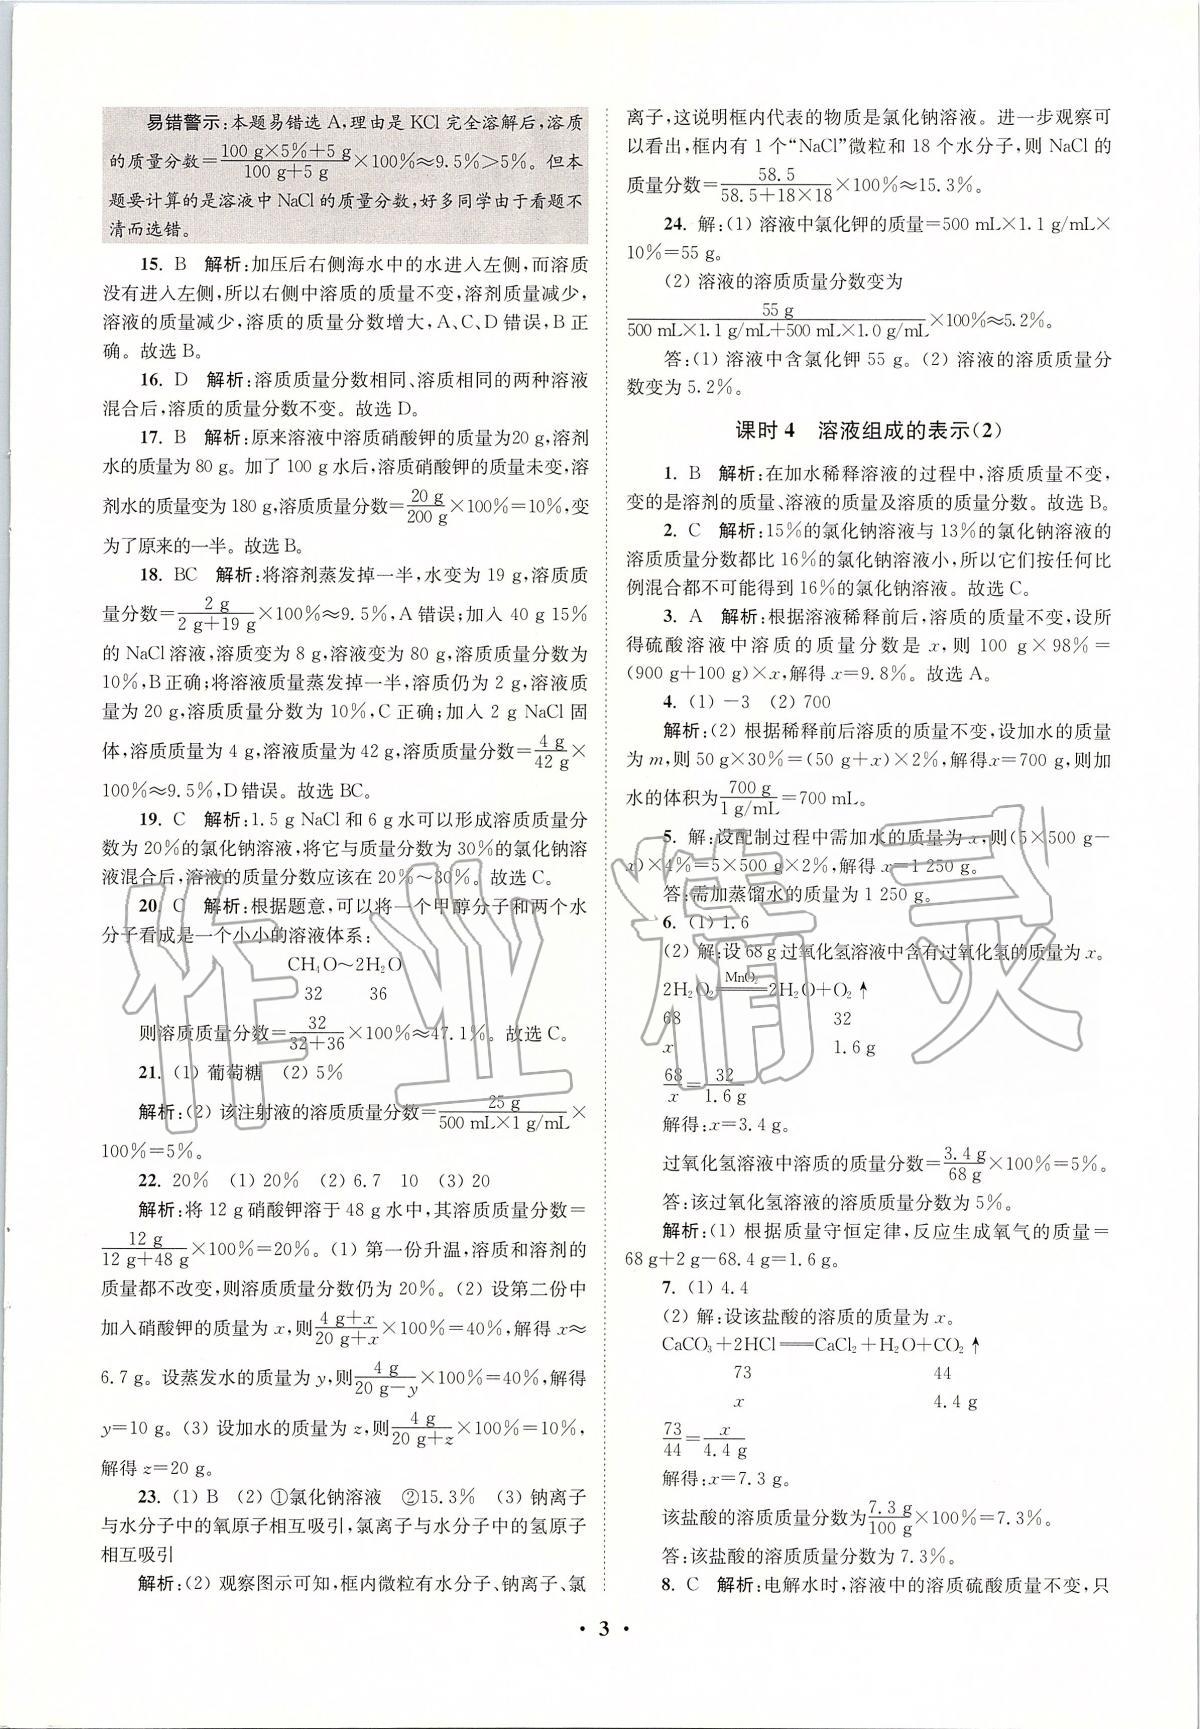 易错警示:本题易错选 A,理由是 KCl 完全溶解后,溶质
的质量分数=(100 g×5%+5 g)/(100 g+5 g)×100%≈9.5%>5%。但本
题要计算的是溶液中 NaCl 的质量分数,好多同学由于看题不
清而选错。
15. B 解析:加压后右侧海水中的水进入左侧,而溶质
没有进入左侧,所以右侧中溶质的质量不变,溶剂质量减少,
溶液的质量减少,溶质的质量分数增大,A、C、D 错误,B 正
确。故选 B。
16. D 解析:溶质质量分数相同、溶质相同的两种溶液
混合后,溶质的质量分数不变。故选 D。
17. B 解析:原来溶液中溶质硝酸钾的质量为20 g,溶剂
水的质量为 80 g。加了 100 g 水后,溶质硝酸钾的质量未变,溶
剂水的质量变为 180 g,溶质质量分数=20 g/200 g×100%=10%,变
为了原来的一半。故选 B。
18. BC 解析:将溶剂蒸发掉一半,水变为 19 g,溶质质
量分数=2 g/(2 g+19 g)×100%≈9.5%,A 错误;加入 40 g 15%
的 NaCl 溶液,溶质变为 8 g,溶液变为 80 g,溶质质量分数为
10%,B 正确;将溶液质量蒸发掉一半,溶质仍为 2 g,溶液质
量为 20 g,溶质质量分数为 10%,C 正确;加入 2 g NaCl 固
体,溶质质量为 4 g,溶液质量为 42 g,溶质质量分数=4 g/42 g×
100%≈9.5%,D 错误。故选 BC。
19. C 解析:1.5 g NaCl 和 6 g 水可以形成溶质质量分
数为 20%的氯化钠溶液,将它与质量分数为 30%的氯化钠溶
液混合后,溶液的质量分数应该在 20%~30%。故选 C。
20. C 解析:根据题意,可以将一个甲醇分子和两个水
分子看成是一个小小的溶液体系:
CH₄O~2H₂O
32 36
则溶质质量分数=32/(32+36)×100%≈47.1%。故选 C。
21. (1) 葡萄糖 (2) 5%
解析:(2) 该注射液的溶质质量分数=25 g/(500 mL×1 g/mL)×
100%=5%。
22. 20% (1) 20% (2) 6.7 10 (3) 20
解析:将 12 g 硝酸钾溶于 48 g 水中,其溶质质量分数=
12 g/(12 g+48 g)×100%=20%。(1) 第一份升温,溶质和溶剂的
质量都不改变,则溶质质量分数仍为 20%。(2) 设第二份中
加入硝酸钾的质量为 x,则(4 g+x)/(20 g+x)×100%=40%,解得 x≈
6.7 g。设蒸发水的质量为 y,则4 g/(20 g-y)×100%=40%,解得
y=10 g。(3) 设加水的质量为 z,则4 g/(20 g+z)×100%=10%,
解得 z=20 g。
23. (1) B (2) ①氯化钠溶液 ②15.3% (3) 钠离子
与水分子中的氧原子相互吸引,氯离子与水分子中的氢原子
相互吸引
解析:(2) 观察图示可知,框内微粒有水分子、钠离子、氯
离子,这说明框内代表的物质是氯化钠溶液。进一步观察可
以看出,框内有 1 个“NaCl”微粒和 18 个水分子,则 NaCl 的
质量分数=58.5/(58.5+18×18)×100%≈15.3%。
24. 解:(1) 溶液中氯化钾的质量=500 mL×1.1 g/mL×
10%=55 g。
(2) 溶液的溶质质量分数变为
55 g/(500 mL×1.1 g/mL+500 mL×1.0 g/mL)×100%≈5.2%。
答:(1) 溶液中含氯化钾 55 g。(2) 溶液的溶质质量分
数变为 5.2%。
课时 4 溶液组成的表示(2)
1. B 解析:在加水稀释溶液的过程中,溶质质量不变,
变的是溶剂的质量、溶液的质量及溶质的质量分数。故选 B。
2. C 解析:15%的氯化钠溶液与 13%的氯化钠溶液的
溶质质量分数都比 16%的氯化钠溶液小,所以它们按任何比
例混合都不可能得到 16%的氯化钠溶液。故选 C。
3. A 解析:根据溶液稀释前后,溶质的质量不变,设所
得硫酸溶液中溶质的质量分数是 x,则 100 g×98%=
(900 g+100 g)×x,解得 x=9.8%。故选 A。
4. (1) -3 (2) 700
解析:(2) 根据稀释前后溶质的质量不变,设加水的质量
为 m,则 50 g×30%=(50 g+x)×2%,解得x=700 g,则加
水的体积为700 g/(1 g/mL)=700 mL。
5. 解:设配制过程中需加水的质量为 x,则(5×500 g-
x)×4%=5×500 g×2%,解得 x=1 250 g。
答:需加蒸馏水的质量为 1 250 g。
6. (1) 1.6
(2) 解:设 68 g 过氧化氢溶液中含有过氧化氢的质量为 x。
2H₂O₂ =MnO₂= 2H₂O+O₂↑
68 32
x 1.6 g
68/x=32/1.6 g
解得:x=3.4 g。
过氧化氢溶液中溶质的质量分数=3.4 g/68 g×100%=5%。
答:该过氧化氢溶液的溶质质量分数为 5%。
解析:(1) 根据质量守恒定律,反应生成氧气的质量=
68 g+2 g-68.4 g=1.6 g。
7. (1) 4.4
(2) 解:设该盐酸的溶质的质量为 x。
CaCO₃+2HCl══CaCl₂+H₂O+CO₂↑
73 44
x 4.4 g
73/44=x/4.4 g
解得:x=7.3 g。
该盐酸的溶质质量分数为7.3 g/100 g×100%=7.3%。
答:该盐酸的溶质质量分数为 7.3%。
8. C 解析:电解水时,溶液中的溶质硫酸质量不变,只
• 3 •
作业精灵